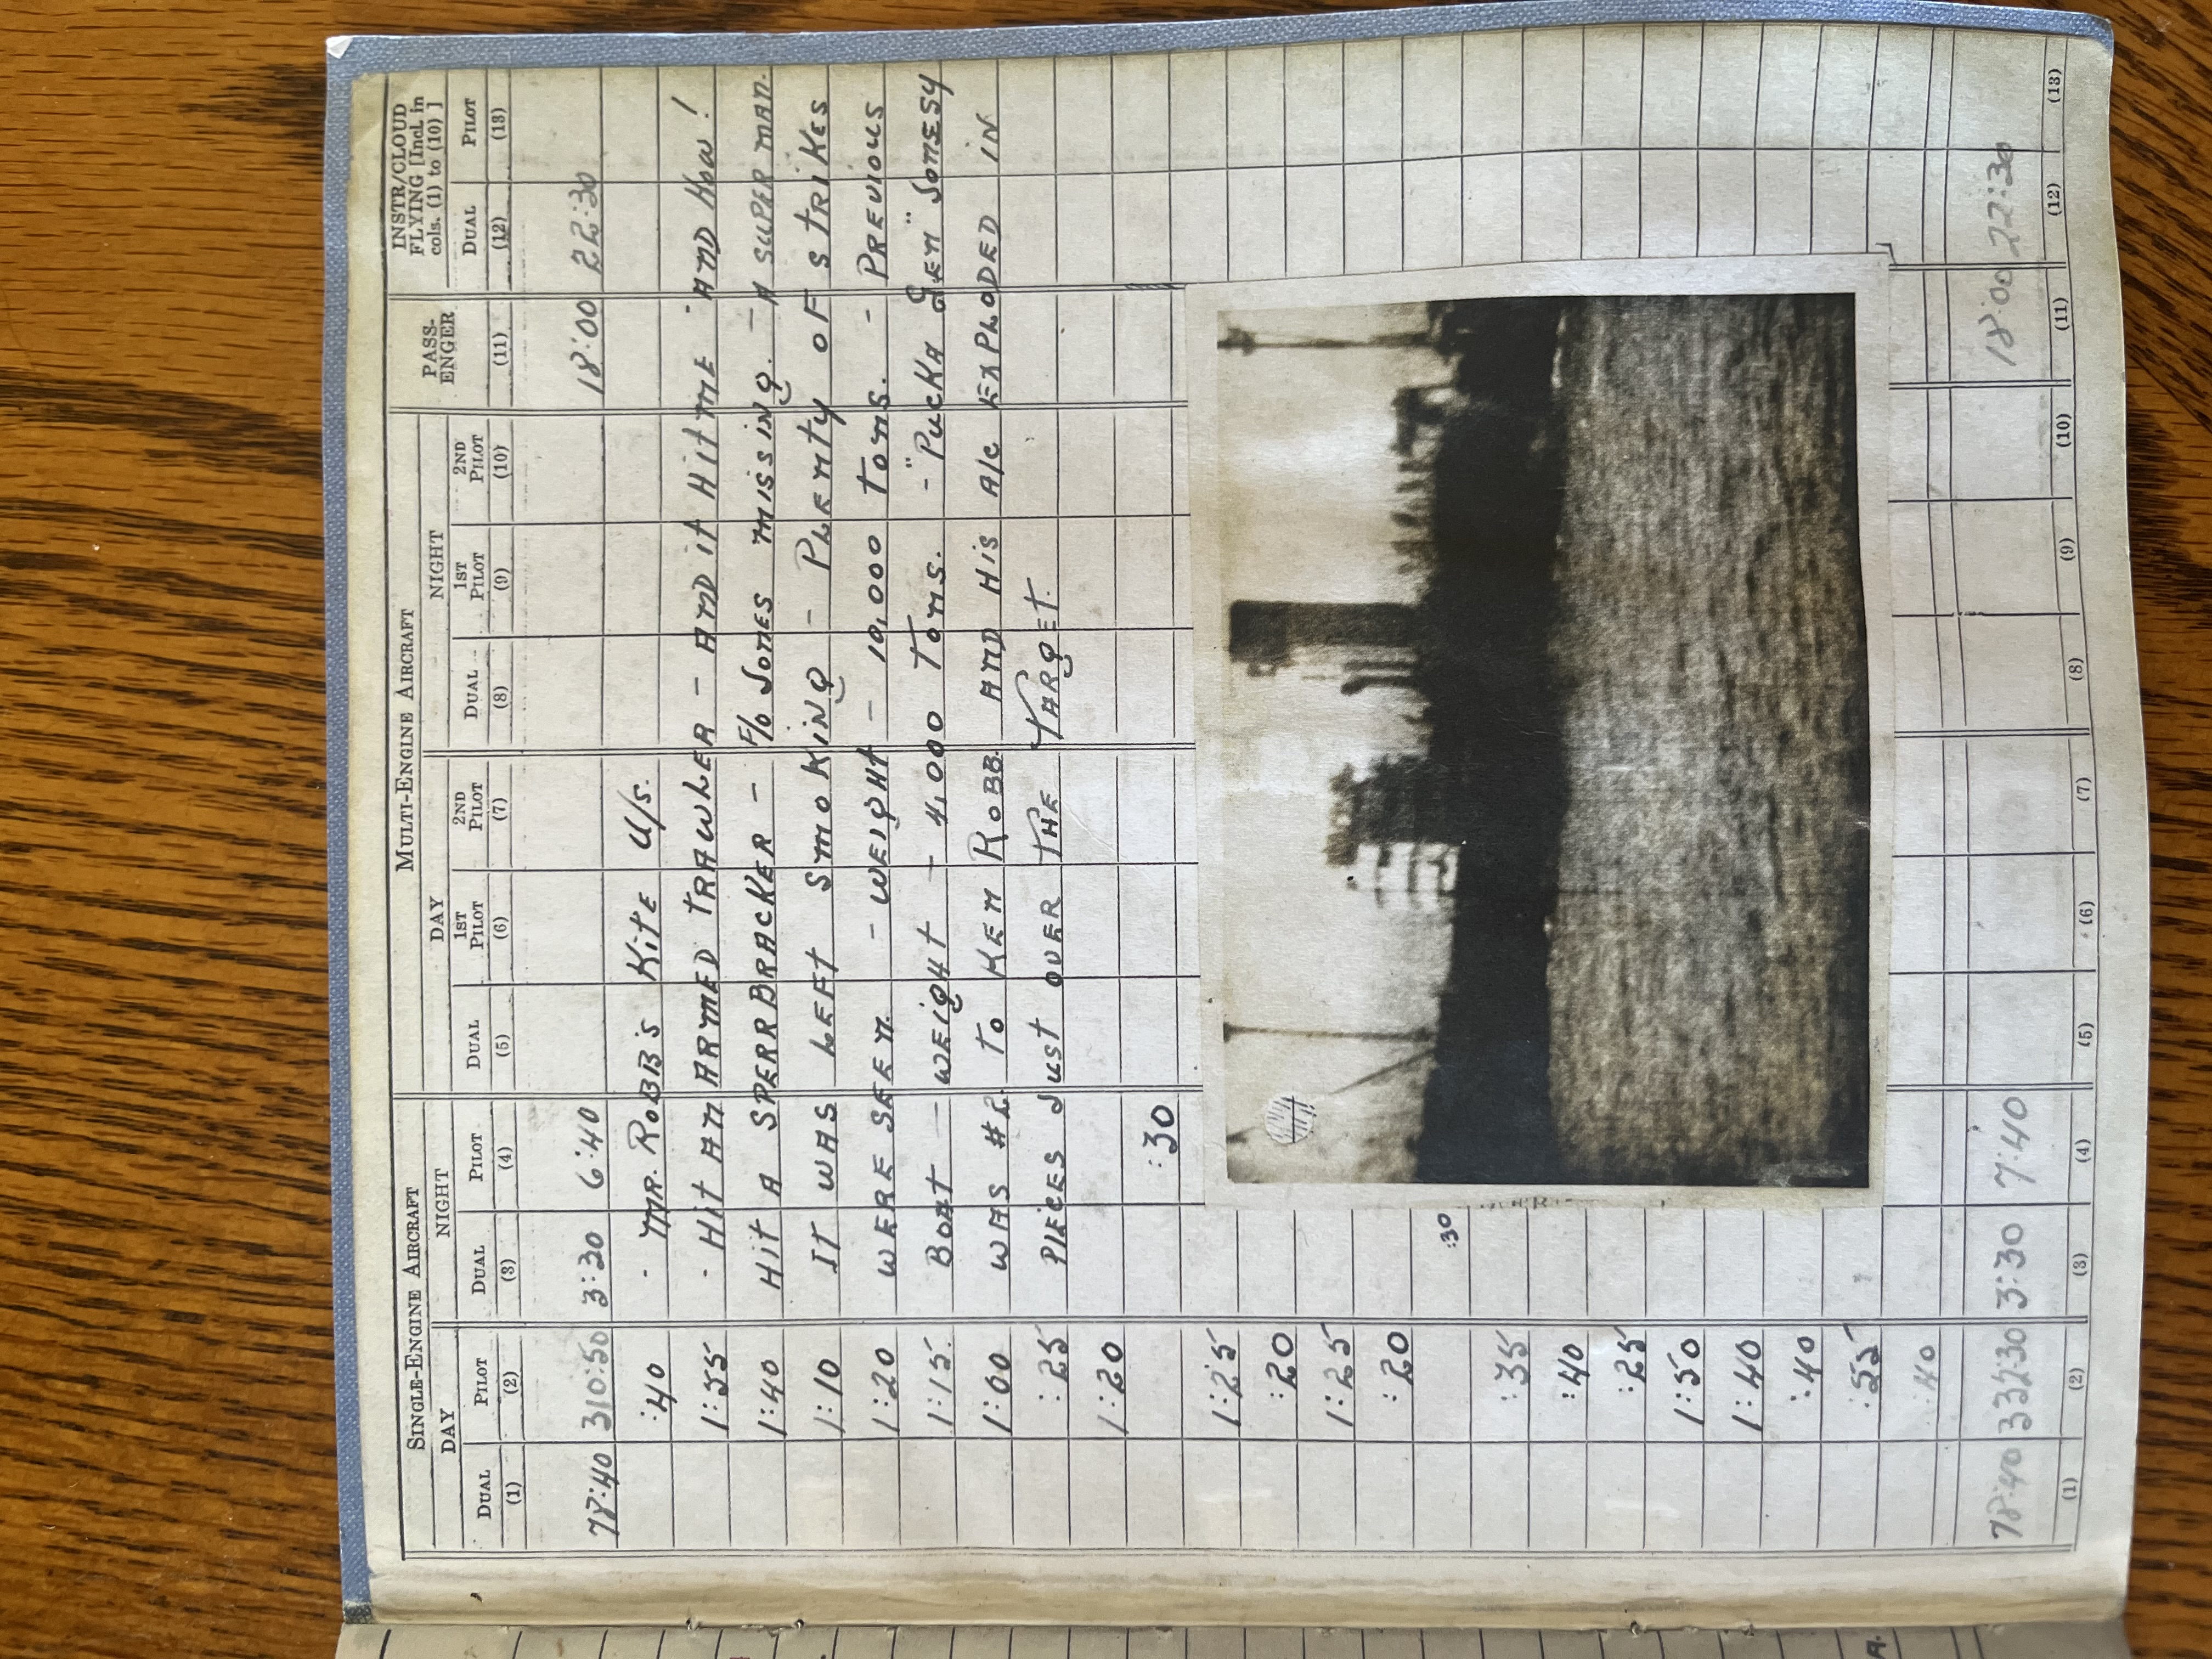 SINGLE-ENGINE AIRCRAFT MULTI-ENGINE AIRCRAFT PASS-ENGER INSTR/CLOUD FLYING [Incl. in cols. (1) to (10)]
DAY NIGHT DAY NIGHT
DUAL PILOT DUAL PILOT DUAL 1ST PILOT 2ND PILOT DUAL 1ST PILOT 2ND PILOT DUAL PILOT
(1) (2) (3) (4) (5) (6) (7) (8) (9) (10) (11) (12) (13)
78:40 310:50 3:30 6:40 18:00 22:30
:40 - MR. ROBB'S KITE U/S.
1:55 - HIT AN ARMED TRAWLER - AND IT HIT ME - AND HOW!
1:40 HIT A SPERRBRACKER - F/O JONES MISSING. - A SUPER MAN.
1:10 IT WAS LEFT SMOKING - PLENTY OF STRIKES
1:20 WERE SEEN. - WEIGHT - 10,000 TONS. - PREVIOUS
1:15 BOAT - WEIGHT - 4,000 TONS. - "PUCKA GEN" JONESY
1:00 WAS #2 TO KEN ROBB AND HIS A/C EXPLODED IN
:25 PIECES JUST OVER THE TARGET.
1:20
:30
1:25
:20
1:25
:20
:30
:35
:40
:25
1:50
1:40
:40
:55
:40
78:40 332:30 3:30 7:40 18:00 22:30
(1) (2) (3) (4) (5) (6) (7) (8) (9) (10) (11) (12) (13)